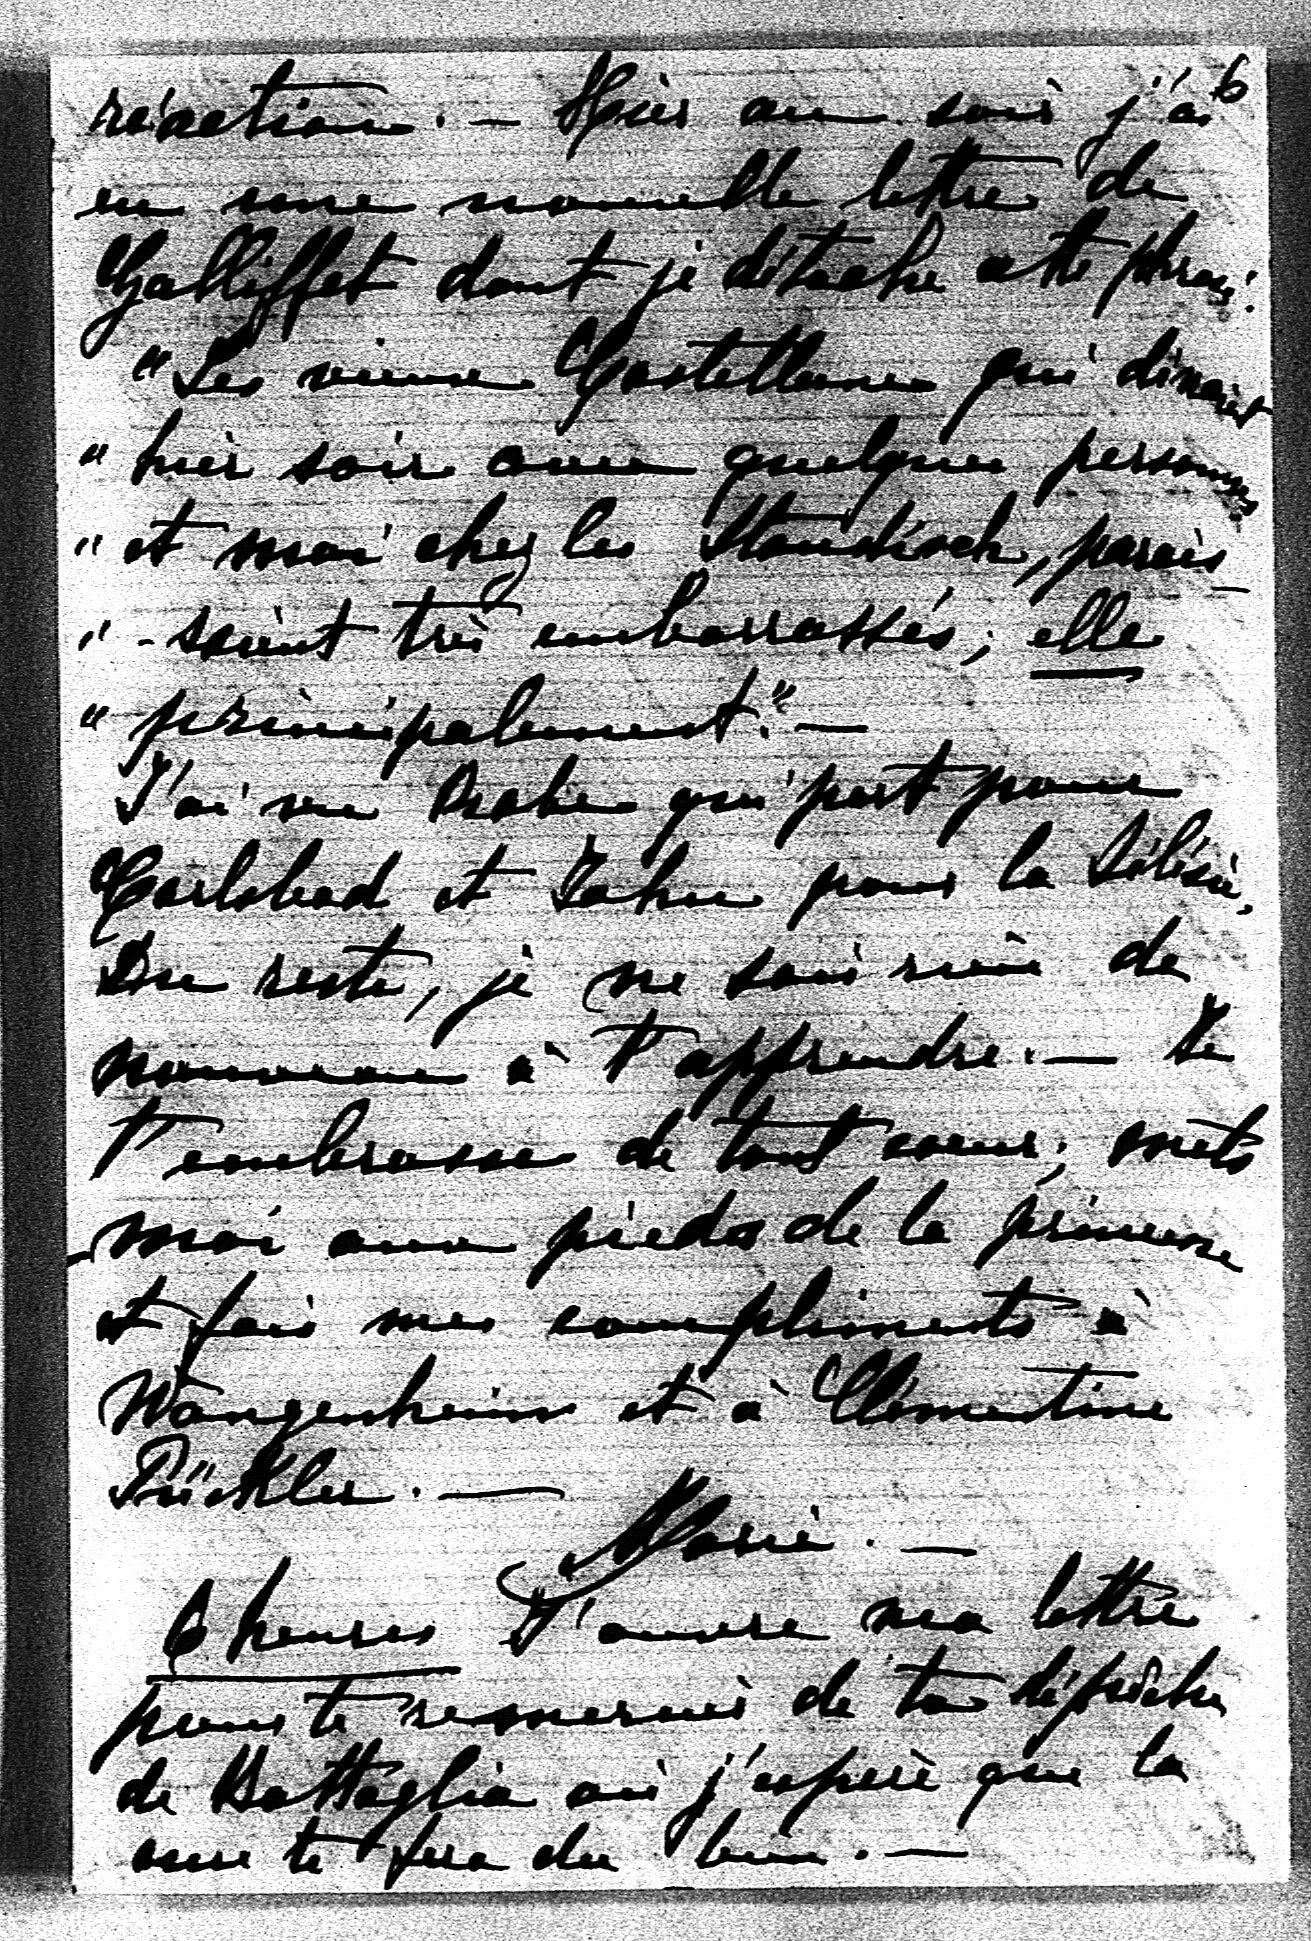 6
réaction. — Hier au soir j'ai
eu une nouvelle lettre de
Galliffet dont je détache cette phrase:
"Les vieux Castellane qui dinaient
" hier soir avec quelques personnes
" et moi chez les Standisch, parais-
" -saient très embarrassés; elle
" principalement." —
J'ai vu qui part pour
Carlsbad et pour la Silésie,
Du reste, je ne sais rien de
nouveau à t'apprendre. — Je
t'embrasse de tout cœur; mets
-moi aux pieds de la princesse
et fais mes compliments à
Wangenheim et à Clémentine
Pückler. —
Marie. —
6 heures J'ouvre ma lettre
pour te remercier de ta dépêche
de Battaglia où j'espère que la
cure te fera du bien. —